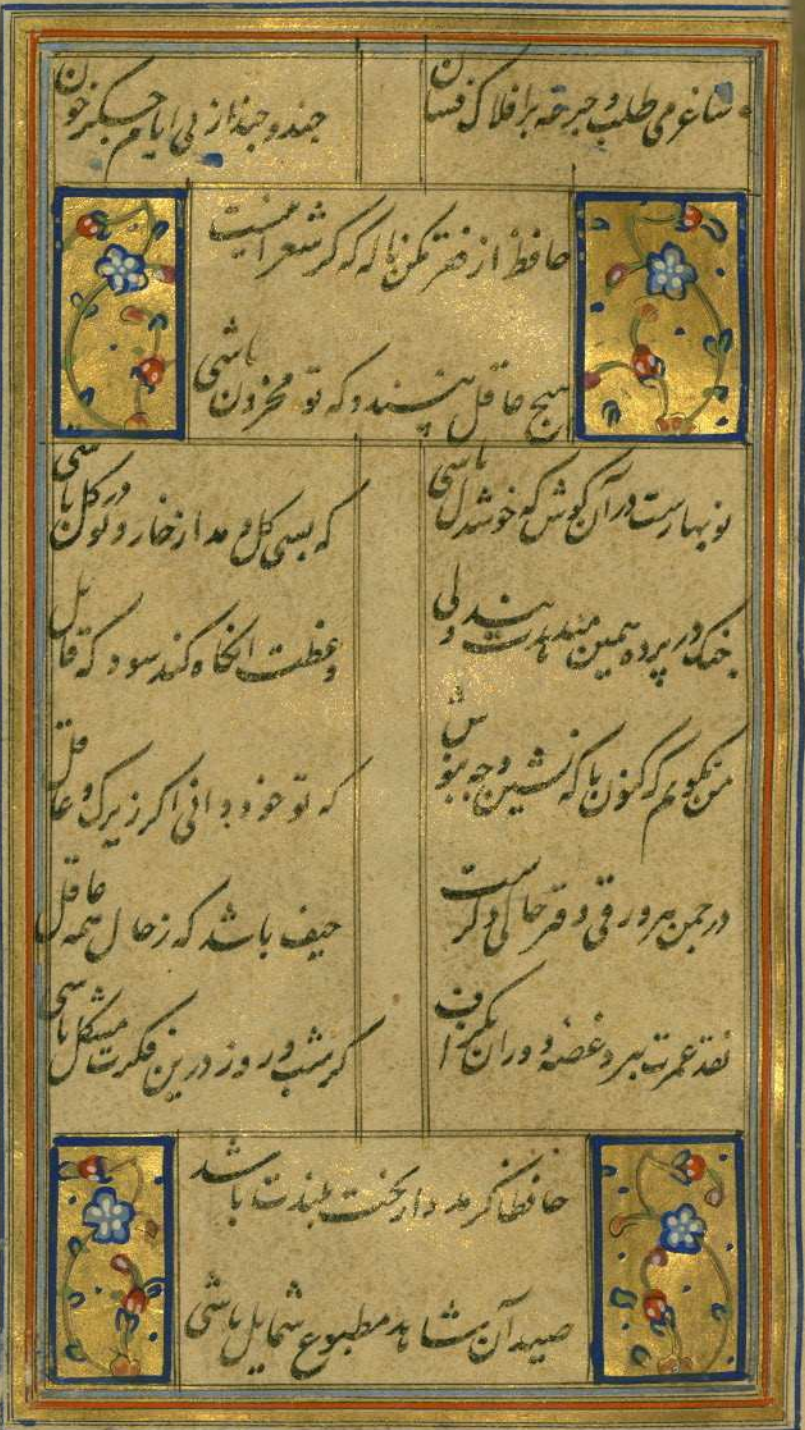 ساغر می طلب و جرعه بر افلاک فشان
چند و چند از پی ایام جگر خون
حافظ از فقر مکن ناله که گر شعر اینست
هیچ عاقل نپسندد که تو محزون باشی
نوبهارست در آن کوش که خوشدل باشی
که بسی گل دمد از خار و تو در گل باشی
چنگ در پرده همین میدهدت پند ولی
وعظت انگاه کند سود که قابل
من نگویم که کنون با که نشین و چه بنوش
که تو خود دانی اگر زیرک و عاقل
در چمن هر ورقی دفتر حالی دگرست
حیف باشد که ز حال همه غافل
نقد عمرت ببرد غصه دوران بگزاف
گر شب و روز درین فکرت مشکل باشی
حافظا گر مدد از بخت بلندت باشد
صید آن شاهد مطبوع شمایل باشی